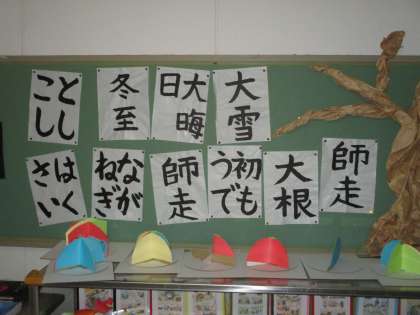 としこし
冬至
大晦日
大雪
はくさい
ながねぎ
師走
初もうで
大根
師走